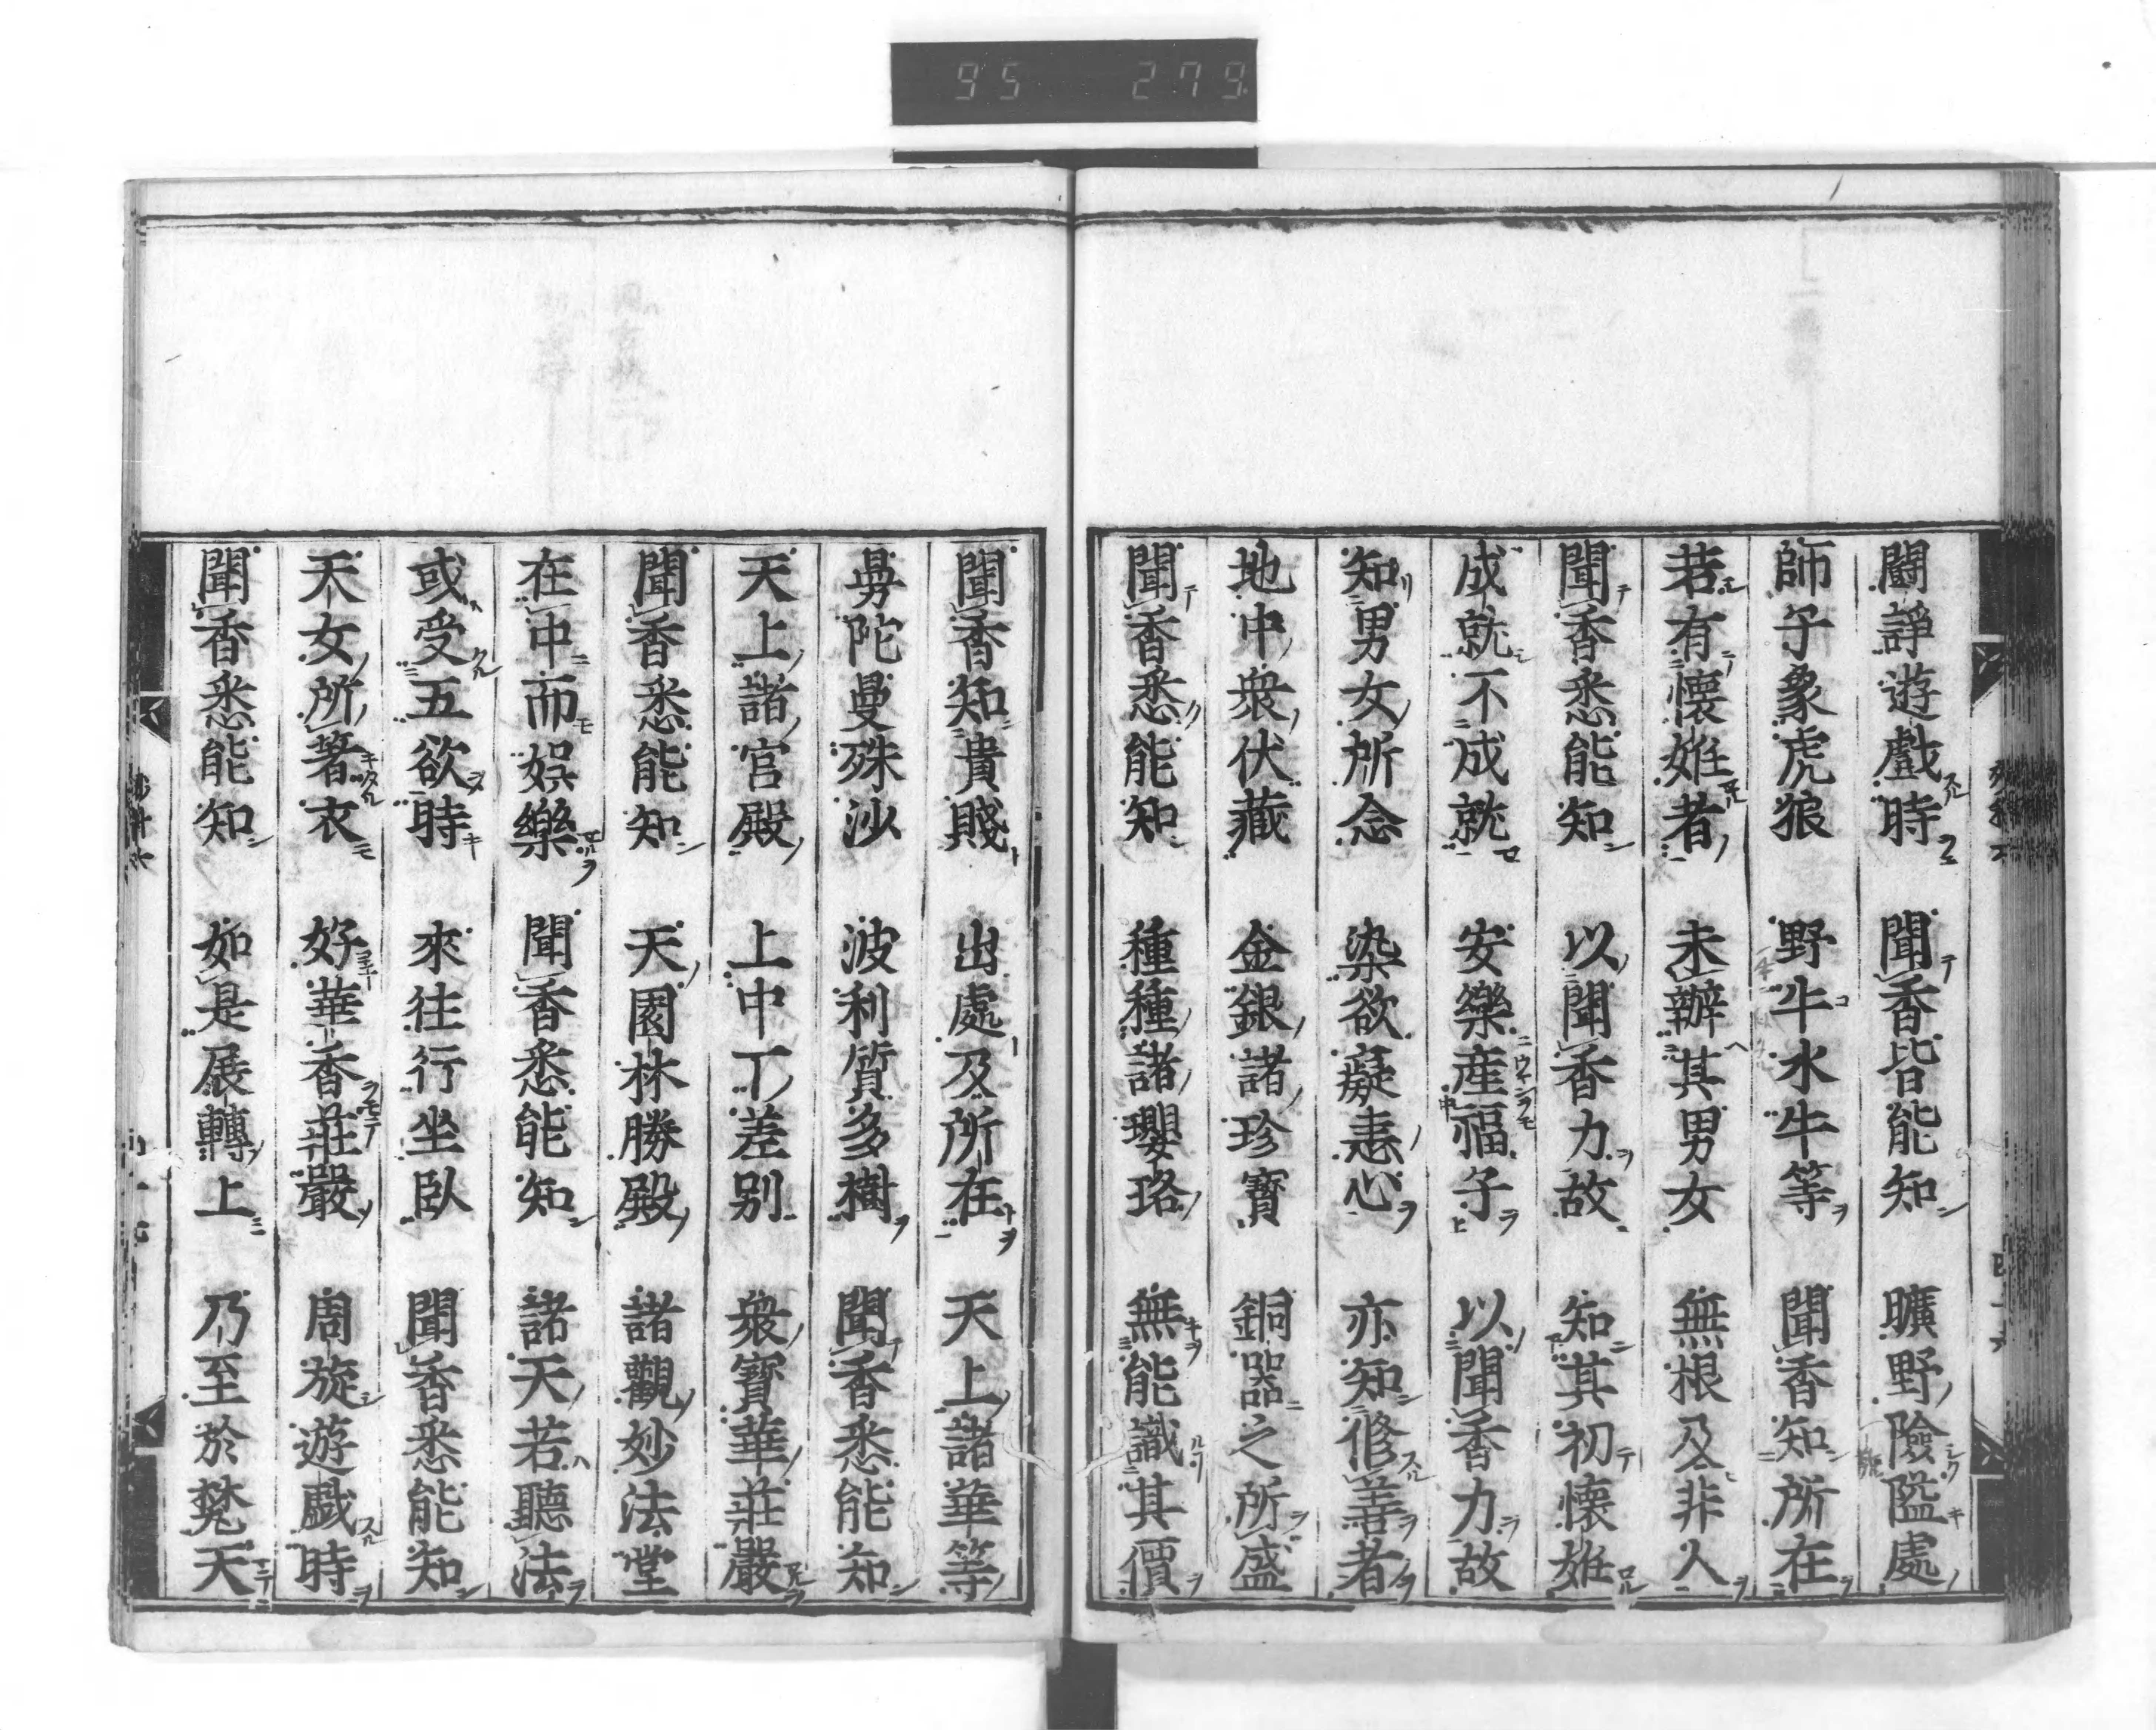 95 279
闘諍遊戲時 聞香皆能知 曠野險隘處
師子象虎狼 野牛水牛等 聞香知所在
若有懷姙者 未辦其男女 無根及非人
聞香悉能知 以聞香力故 知其初懷姙
成就不成就 安樂産福子 以聞香力故
知男女所念 染欲癡恚心 亦知修善者
地中衆伏藏 金銀諸珍寶 銅器之所盛
聞香悉能知 種種諸瓔珞 無能識其價
聞香知貴賤 出處及所在 天上諸華等
曼陀曼殊沙 波利質多樹 聞香悉能知
天上諸宮殿 上中下差别 衆寶華莊嚴
聞香悉能知 天園林勝殿 諸觀妙法堂
在中而娯樂 聞香悉能知 諸天若聽法
或受五欲時 來往行坐臥 聞香悉能知
天女所著衣 好華香莊嚴 周旋遊戯時
聞香悉能知 如是展轉上 乃至於梵天